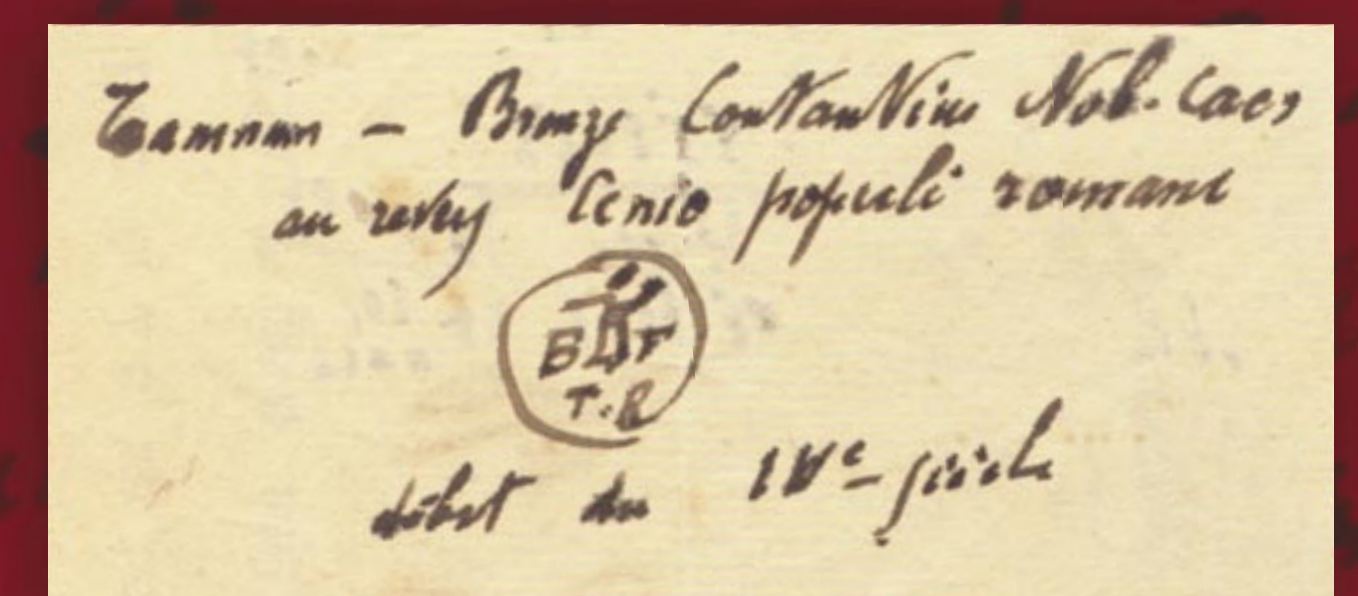 Tamnum – Bronze Constantius Nob. Caes
au revers Genio populi romani
B F
T.R
début du IVe siècle